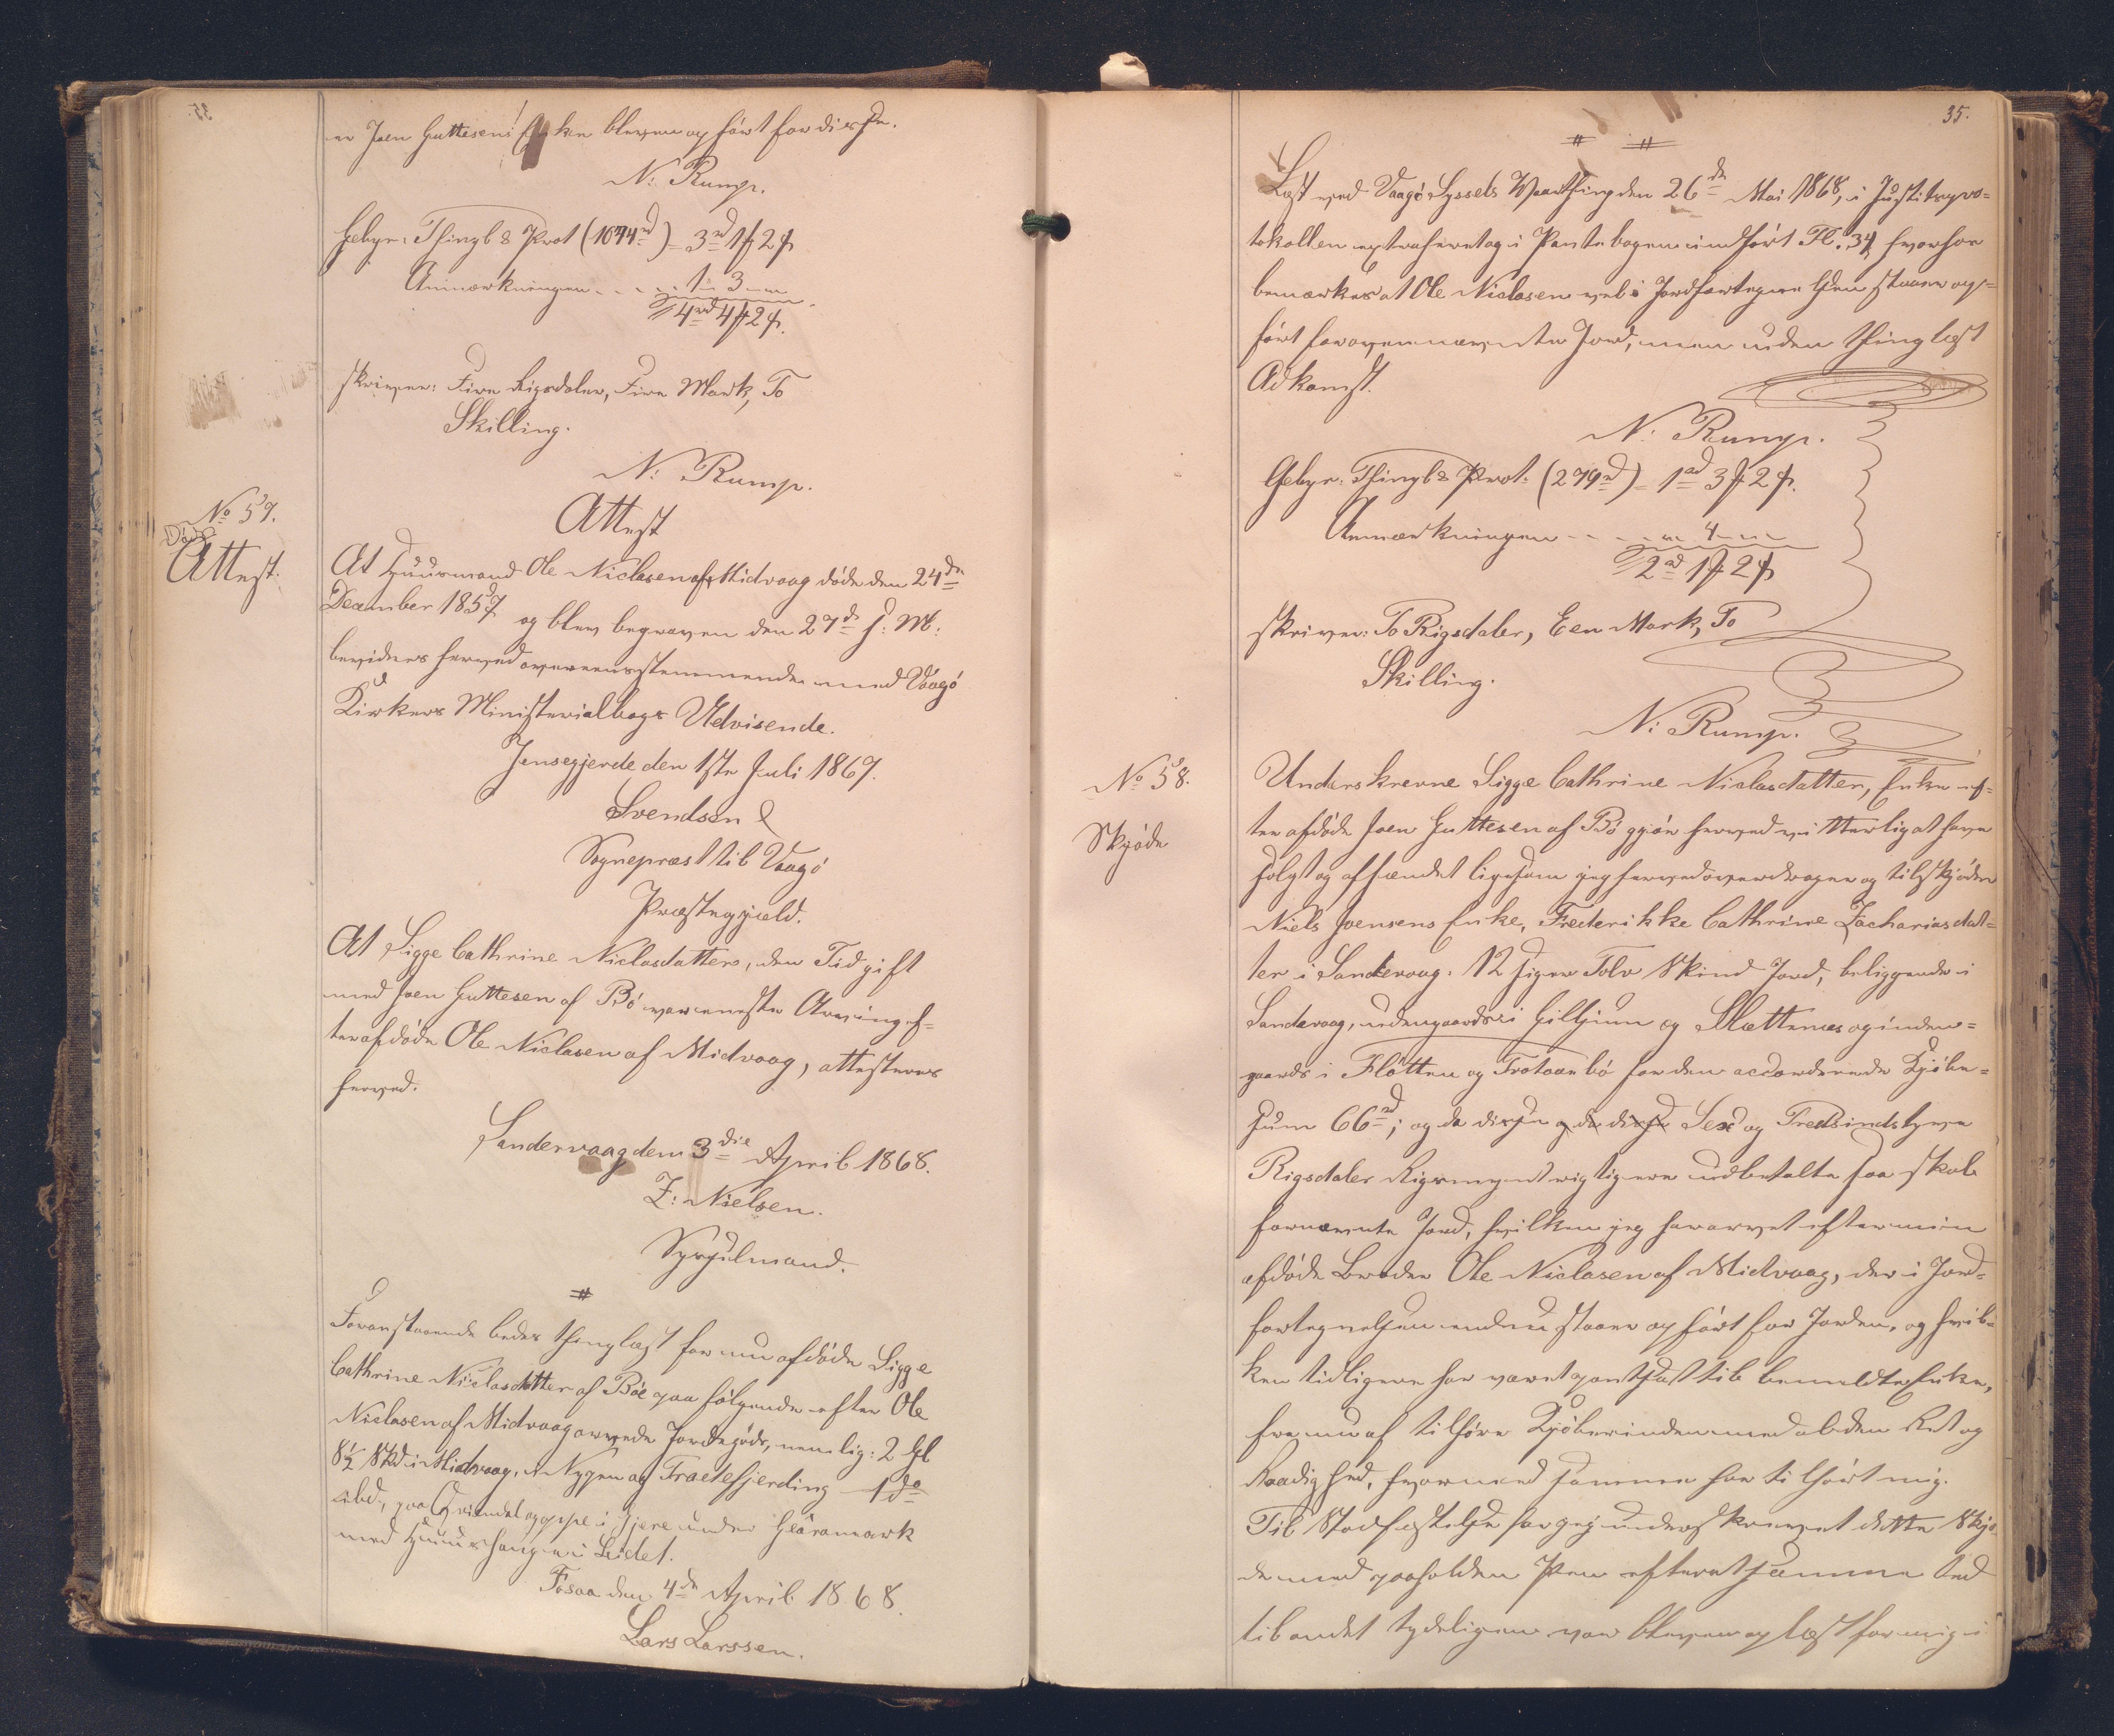 er Joen Guttesens Enke bleven opført for disse.
N: Rump.
Gebyr: Thingl & Prot (1044rd) = 3rd 1 2
Anmærkningen . . . . 1 - 3 -
4rd 4 2
skriver: Fire Rigsdaler, Fire Mark, To
Skilling.
N: Rump.
No 57.
Døds
Attest.
Attest
At Huusmand Ole Niclasen af Midvaag døde den 24de
December 1857 og blev begraven den 27de s: M:
bevidnes herved overeensstemmende med Vaagø
Kirkes Ministerialbogs Udvisende.
Jensegjerde den 1ste Juli 1867.
Svendsen
Sognepræst til Vaagø
Præstegjæld.
At Sigge Cathrine Niclasdatter, den Tid gift
med Joen Guttesen af Bø var eneste Arving ef-
ter afdøde Ole Niclasen af Midvaag, attesteres
herved.
Sandervaag den 3die April 1868.
Z: Nielsen.
Sysselmand.
#
Foranstaaende bedes thinglæst for nu afdøde Sigge
Cathrine Niclasdatter af Bøe paa følgende efter Ole
Niclasen af Midvaag arvede Jordegods, nemlig: 2 Gl
8½ Skd i Midvaag, i Nygen og Traelefjerding 1 do
ibd, paa oppe i Gjere under Gläramark
med Huushauge i Leidet.
Fosaa den 4de April 1868.
Lars Larssen.
35.
# #
Læst ved Vaagø Syssels Vaarthing den 26de Mai 1868, i Justitspro-
tokollen extraheret og i Pantebogen indført Fl. 34, hvorhos
bemærkes at Ole Niclasen vel i Jordfortegnelsen staaer op-
ført for ovennævnte Jord, men uden thinglæst
Adkomst.
N: Rump.
Gebyr: Thingl & Prot. (279rd) = 1rd 3 2
Anmærkningen - - - - 4 -
2rd 1 2
skriver: To Rigsdaler, Een Mark, To
Skilling.
N: Rump.
No 58.
Skjøde
Underskrevne Sigge Cathrine Niclasdatter, Enke ef-
ter afdøde Joen Guttesen af Bø gjør herved vitterligt at have
solgt og afhændet ligesom jeg herved overdrager og tilskjøder
Niels Joensens Enke, Frederikke Cathrine Zachariasdat-
ter i Sandevaag: 12 siger Tolv Skind Jord, beliggende i
Sandevaag, udengaards i Giljum og Slættenes og inden-
gaards i Flötten og Trotaanbø for den accorderede Kjøbe-
sum 66rd; og da disse og da disse Sex og Tredsindstyve
Rigsdaler Rigsmynt rigtigen ere udbetalte saa skal
fornævnte Jord, hvilken jeg har arvet efter min
afdøde Broder Ole Niclasen af Midvaag, der i Jord-
fortegnelsen endnu staaer opført for Jorden, og hvil-
ken tidligere har været pantsat til bemeldte Enke,
fra nu af tilhøre Kjøberinden med al den Ret og
Raadighed, hvormed samme har tilhørt mig.
Til Stadfæstelse har jeg underskrevet dette Skjø-
de med paaholden Pen efterat samme Ord
til andet tydeligen var bleven oplæst for mig i